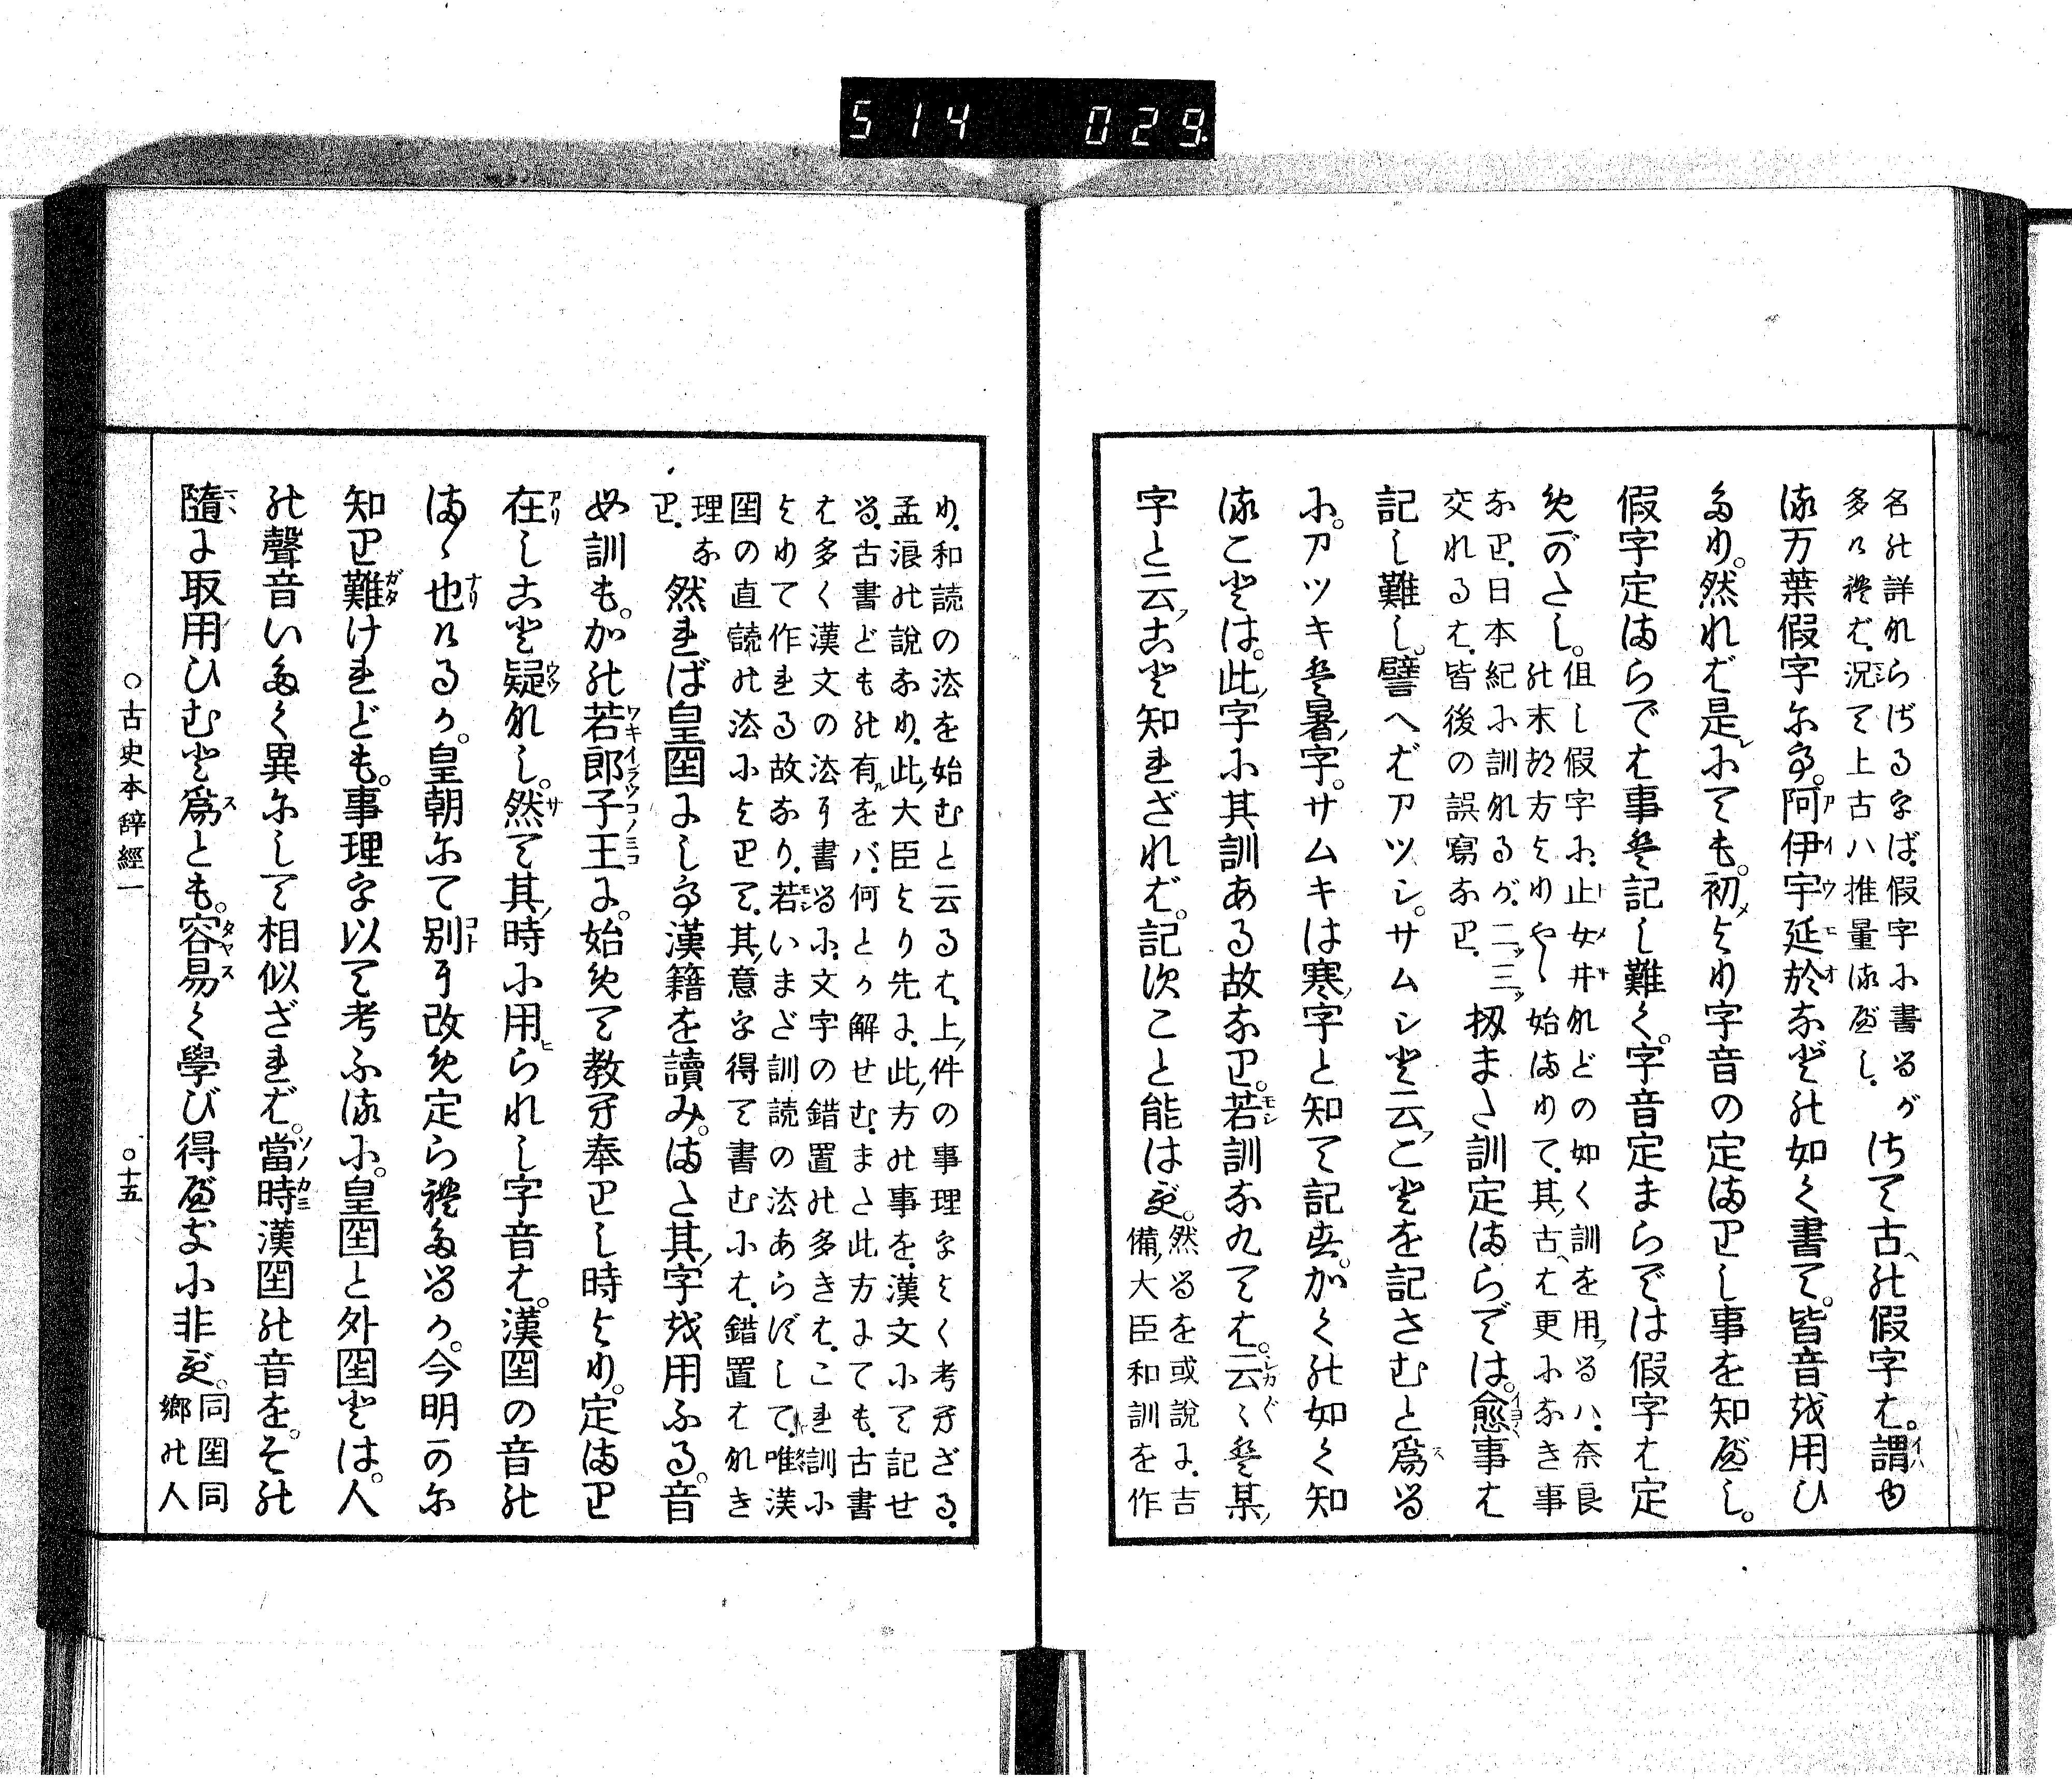 514 029
名の詳ならざるをば、假字に書るが
多かれば、況て上古ハ推量るべし、
さて古への假字は。謂ゆ
る万葉假字にて。阿伊宇延於などの如く書て。皆音を用ひ
たり。然れば是にても。初より字音の定まりし事を知べし。
假字定まらでは事を記し難く。字音定まらでは假字は定
めがたし。
但し假字に、止女井などの如く訓を用るハ、奈良
の末つ方よりやゝ始まりて、其古へは更になき事
なり、日本紀に訓なるが、二ツ三ツ
交れるは、皆後の誤寫なり、
扨また訓定まらでは。愈事は
記し難し。譬へばアツシ。サムシと云ことを記さむと爲る
に。アツキを暑字。サムキは寒字と知て記せ。かくの如く知
ることは。此字に其訓ある故なり。若訓なくては。云々を某
字と云ふこと知れざれば。記すこと能はず。
然るを或說に、吉
備大臣和訓を作
り、和読の法を始むと云るは、上件の事理をよく考ざる、
孟浪の說なり、此大臣より先に、此方の事を、漢文にて記せ
る、古書どもの有るをバ、何とか解せむ、また此方にても、古書
は多く漢文の法に書るに、文字の錯置の多きは、これ訓に
よりて作れる故なり、若いまだ訓読の法あらずして、唯漢
国の直読の法によりて、其意を得て書むには、錯置はなき
理な
り、
然れば皇国にして漢籍を讀み。また其字を用ふる。音
も訓も。かの若郎子王に。始めて教奉りし時より。定まり
在しこと疑なし。然て其時に用られし字音は。漢国の音の
まゝ也けるか。皇朝にて別に改め定られたるか。今明かに
知り難けれども。事理を以て考ふるに。皇国と外国とは。人
の聲音いたく異にして相似ざれば。當時漢国の音を。その
隨に取用ひむと爲とも。容易く學び得べきに非ず。
同国同
鄉の人
○古史本辭經一
○十五